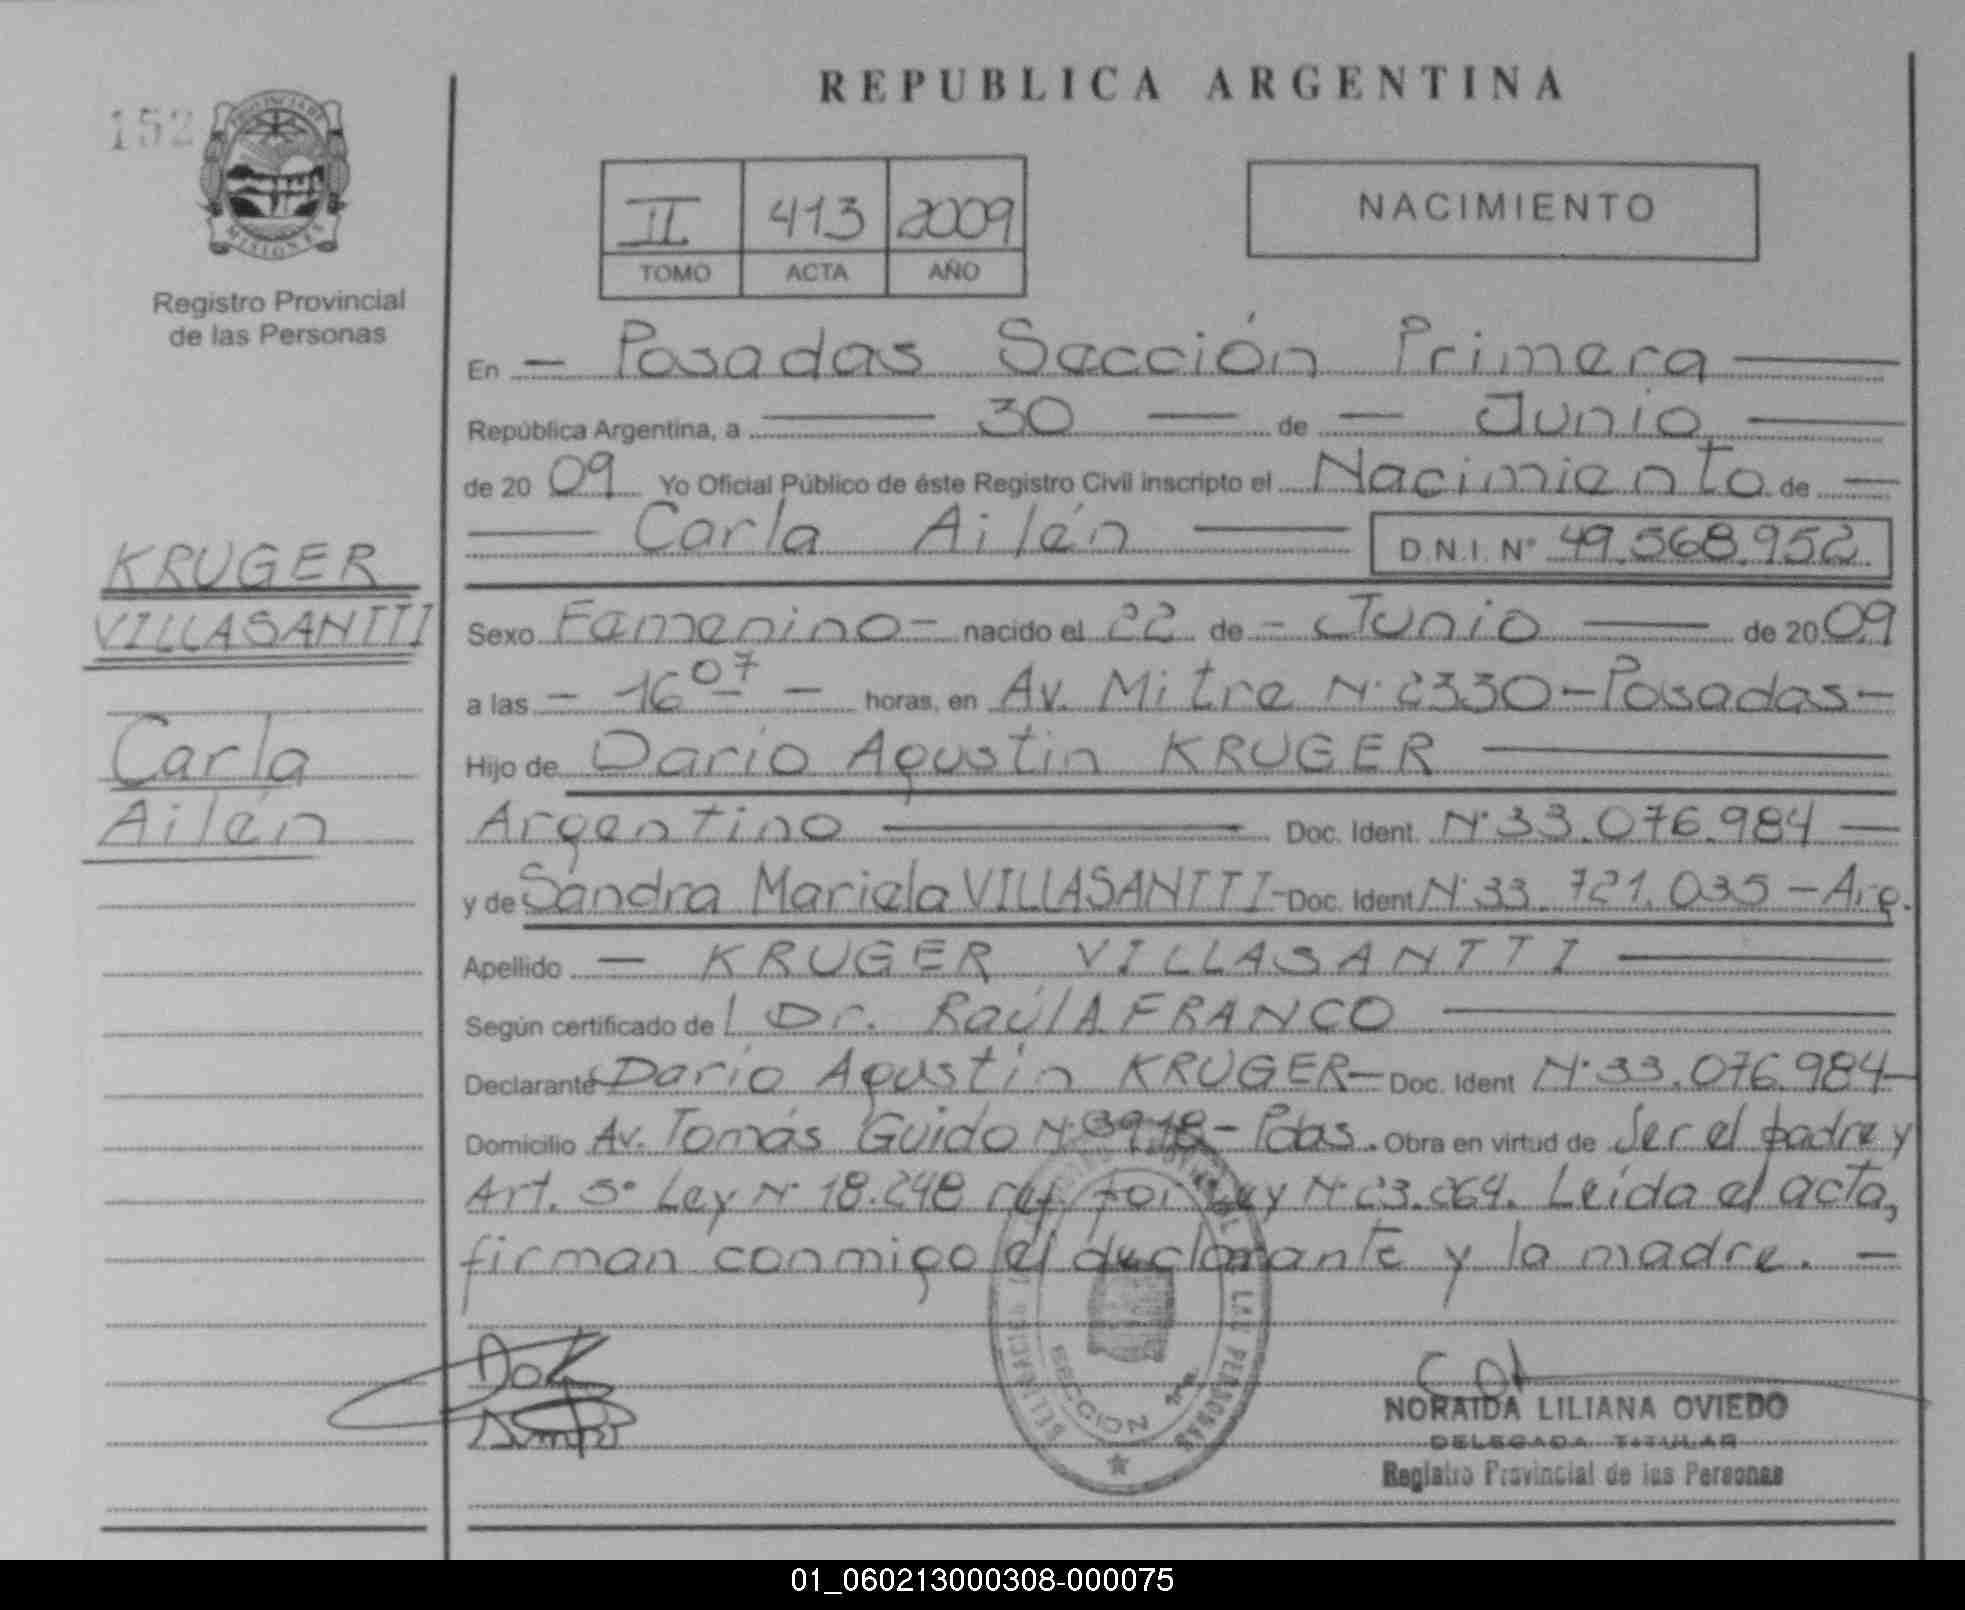 REPUBLICA ARGENTINA
152
PROVINCIA DE
MISIONES
Registro Provincial
de las Personas
II 413 2009
TOMO ACTA AÑO
NACIMIENTO
En — Posadas Sección Primera —
República Argentina, a — 30 — de — Junio —
de 2009 Yo Oficial Público de éste Registro Civil inscripto el Nacimiento de —
— Carla Ailén — D.N.I. N° 49.568.952
KRUGER
VILLASANTTI
Carla
Ailén
Sexo Femenino - nacido el 22 de - Junio — de 2009
a las - 16 07 - horas, en Av. Mitre N° 2330 - Posadas -
Hijo de Dario Agustin KRUGER —
Argentino — Doc. Ident. N° 33.076.984 —
y de Sandra Mariela VILLASANTTI - Doc. Ident N° 33.721.035 - Arg.
Apellido — KRUGER VILLASANTTI —
Según certificado del Dr. Raúl A. FRANCO —
Declarante Dario Agustin KRUGER — Doc. Ident N° 33.076.984 -
Domicilio Av. Tomás Guido N° 3918 - Pdas. Obra en virtud de Ser el padre y
Art. 5° Ley N° 18.248 ref. por Ley N° 23.264. Leída el acta,
firman conmigo el declarante y la madre. —
SECCION 1ra.
NORAIDA LILIANA OVIEDO
DELEGADA TITULAR
Registro Provincial de las Personas
01_060213000308-000075